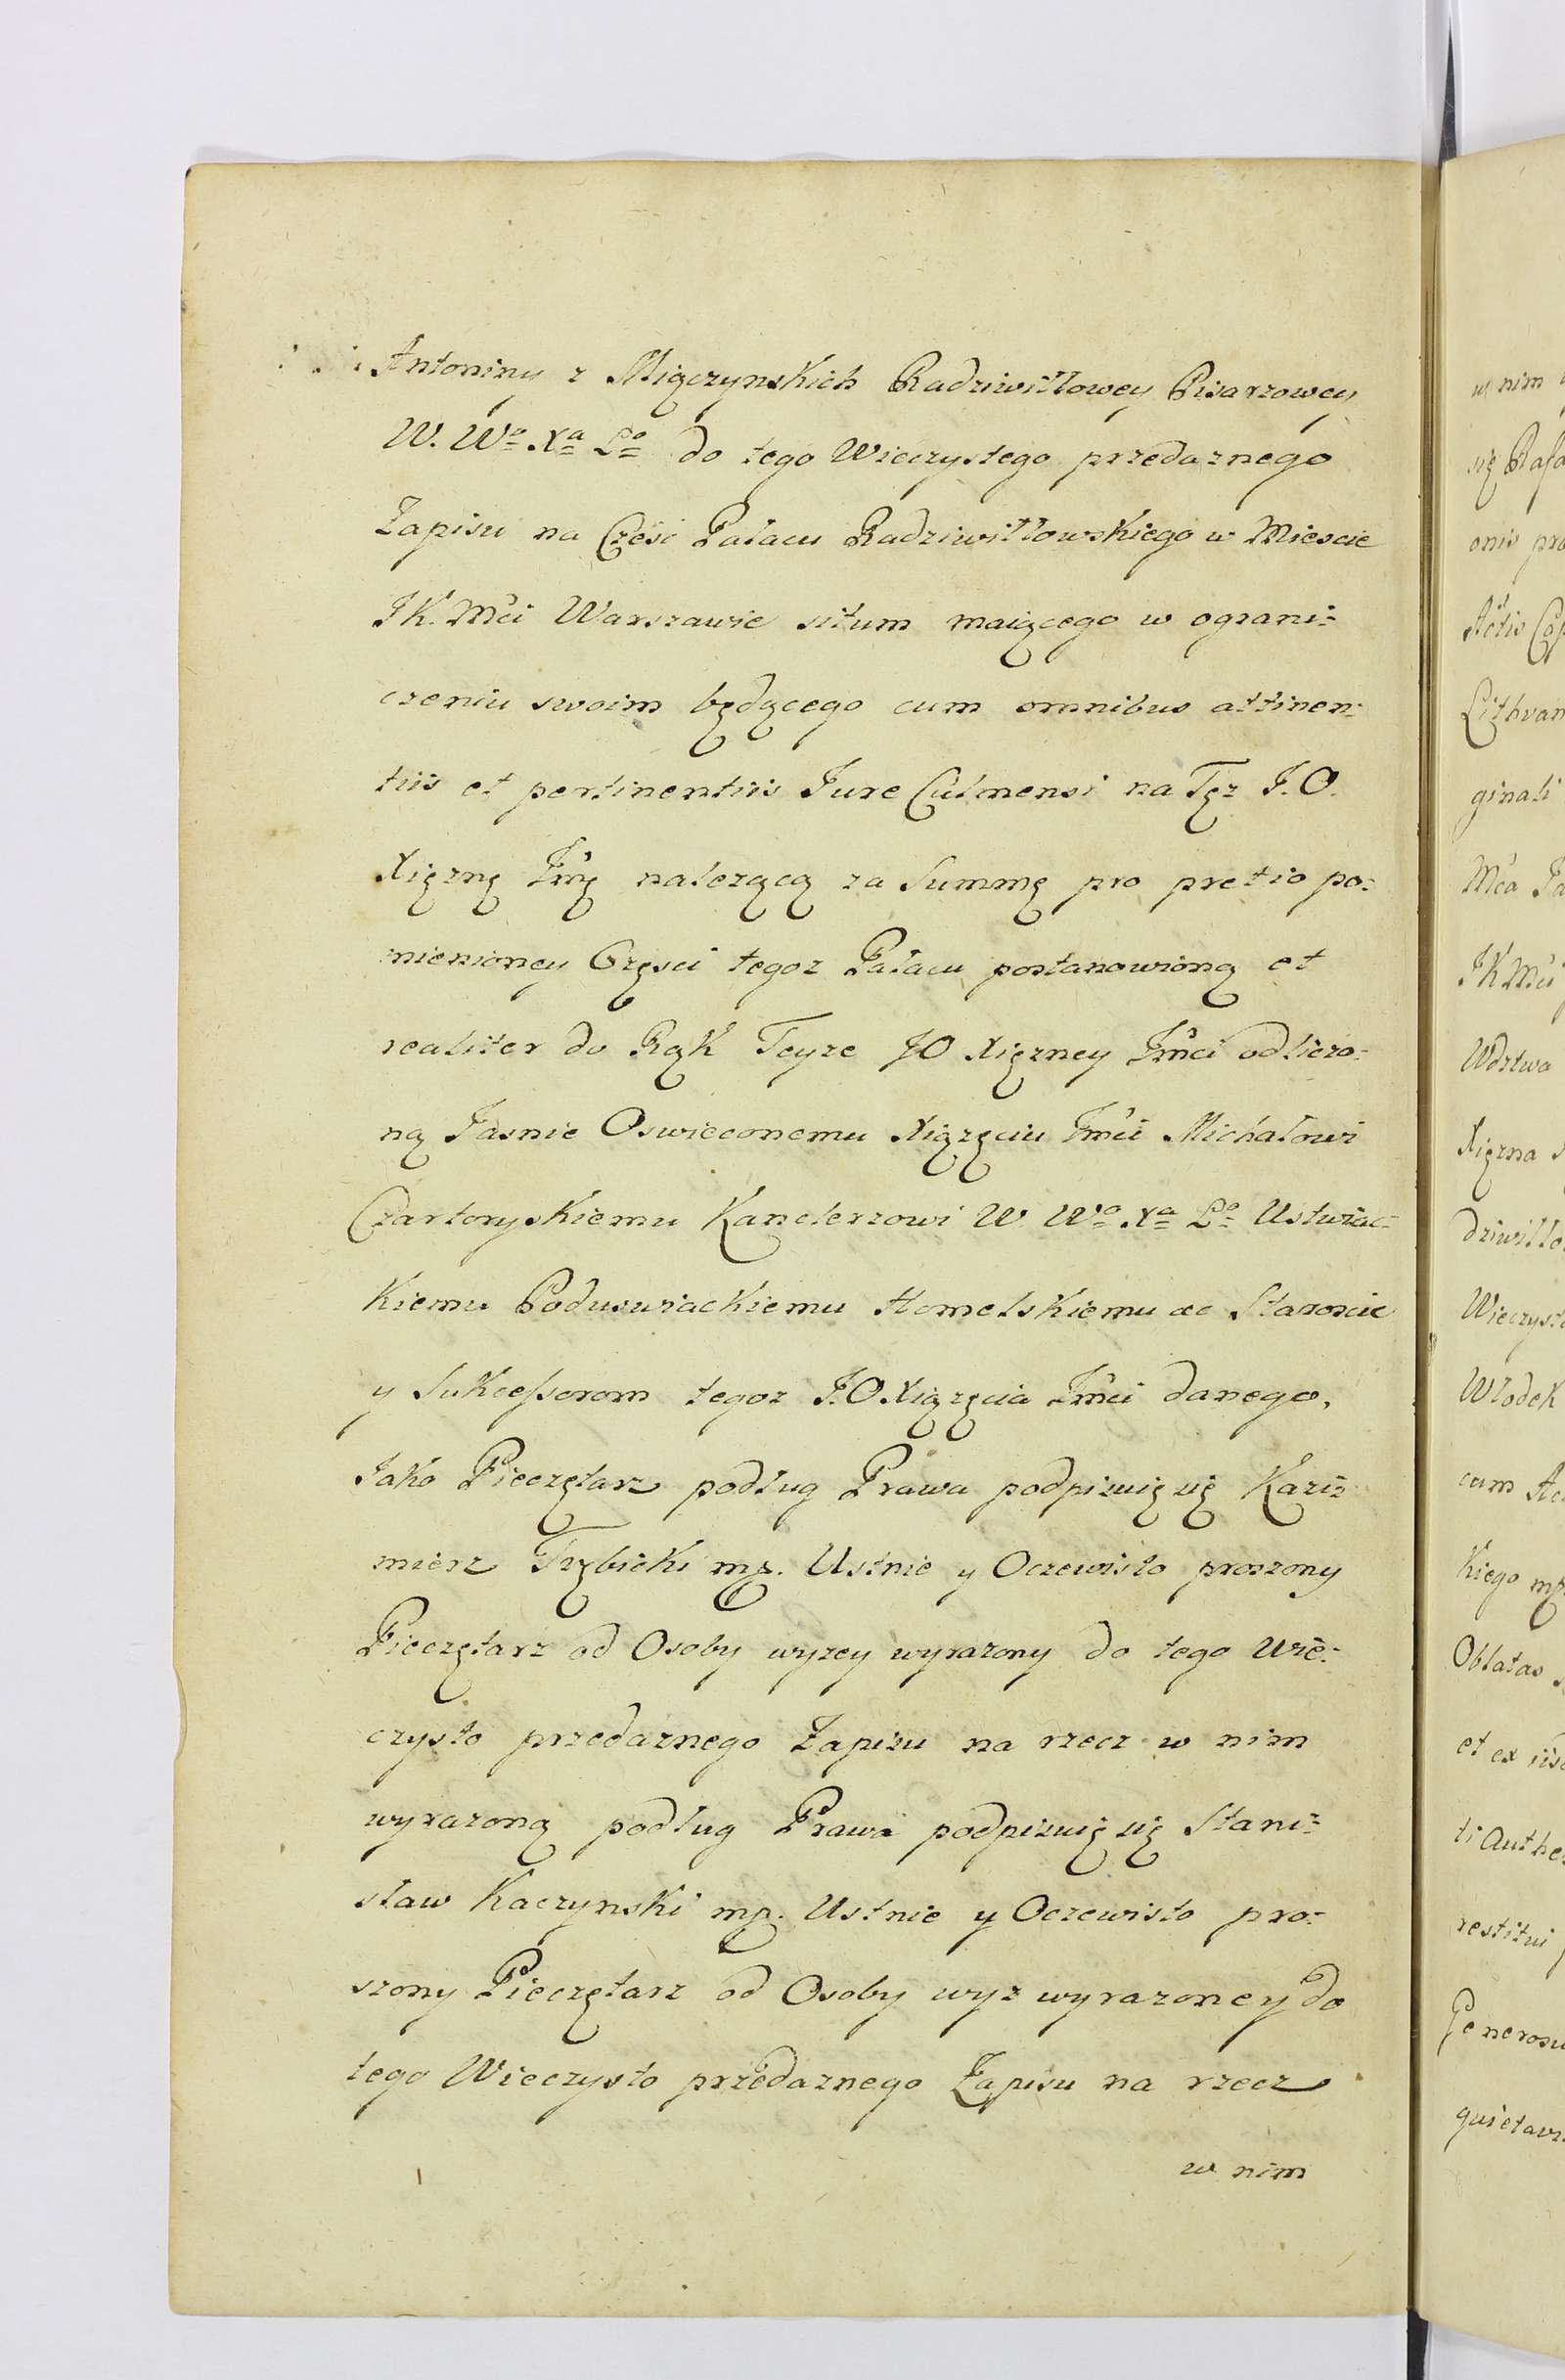 Antoniny z Miączynskich Radziwiłłowey Pisarzowey
W. Wo Xa Lo do tego Wieczystego przedaznego
Zapisu na Częsć Pałacu Radziwiłłowskiego w Miescie
JK. Mci Warszawie situm maiącego w ograni=
czeniu swoim będącego cum omnibus attinen=
tiis et pertinentiis Jure Culmensi na Tęz J.O.
Xięznę Jmę nalezącą za Summę pro pretio po=
mienioney Częsci tegoz Pałacu postanowioną et
realiter do Rąk Teyze JO Xięzney Jmci odliczo=
ną Jasnie Oswieconemu Xiązęciu Jmci Michałowi
Czartoryskiemu Kanclerzowi W Wo Xa Lo Uswiac=
kiemu Poduswiackiemu Homelskiemu &c Staroscie
y Sukcessorom tegoz J.O Xiązęcia Jmci danego,
Jako Pieczętarz podług Prawa podpisuię się Kazi=
mierz Trębicki mp. Ustnie y Oczewisto proszony
Pieczętarz od Osoby wyzey wyrazony do tego Wie=
czysto przedaznego Zapisu na rzecz w nim
wyrazoną podług Prawa podpisuię się Stani=
sław Kaczynski mp. Ustnie y Oczewisto pro=
szony Pieczętarz od Osoby wyz wyrazoney do
tego Wieczysto przedaznego Zapisu na rzecz
w nim
w nim
się Rafa
onis pro
Actis Cap
Lithvan
ginali
Mca Pa
JK Mci
Wdztwa
Xięzna
dziwiłło
Wieczysto
Włodek
cum Ac
kiego mp
Oblatas
et ex iisd
ti Authe
restitui
Generosu
quietavi